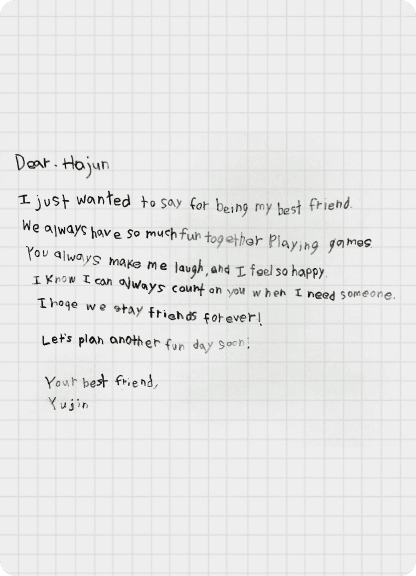 Dear. Hajun
I just wanted to say for being my best friend.
We always have so much fun together playing games
You always make me laugh, and I feel so happy.
I know I can always count on you when I need someone.
I hope we stay friends forever!
Let's plan another fun day soon!
Your best friend,
Yujin